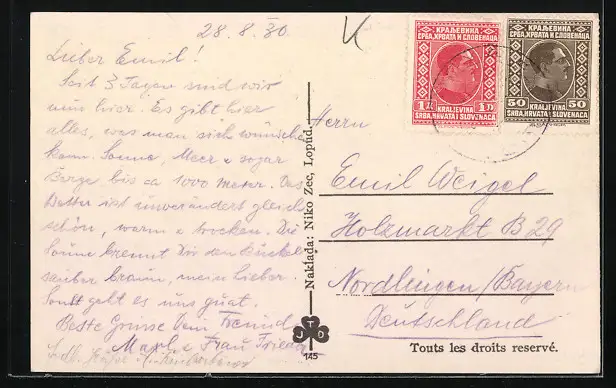 28.8.30
Lieber Emil!
Seit 3 Tagen sind wir
nun hier. Es gibt hier
alles, was man sich wünschen
kann. Sonne, Meer u sogar
Berge bis ca 1000 meter. Das
Wetter ist unverändert gleich
schön, warm u trocken. Die
Sonne brennt Dir den Buckel
sauber braun, mein Lieber.
Sonst geht es uns gut.
Beste Grüsse Dein Freund
u Frau
КРАЉЕВИНА
СРБА, ХРВАТА И СЛОВЕНАЦА
1Д 1D
KRALJEVINA
SRBA, HRVATA I SLOVENACA
КРАЉЕВИНА
СРБА, ХРВАТА И СЛОВЕНАЦА
50 50
KRALJEVINA
SRBA, HRVATA I SLOVENACA
Naklada: Niko Zec, Lopud.
JTD
145
Herrn
Emil Weigel
Holzmarkt B 29
Nördlingen/Bayern
Deutschland
Touts les droits reservé.